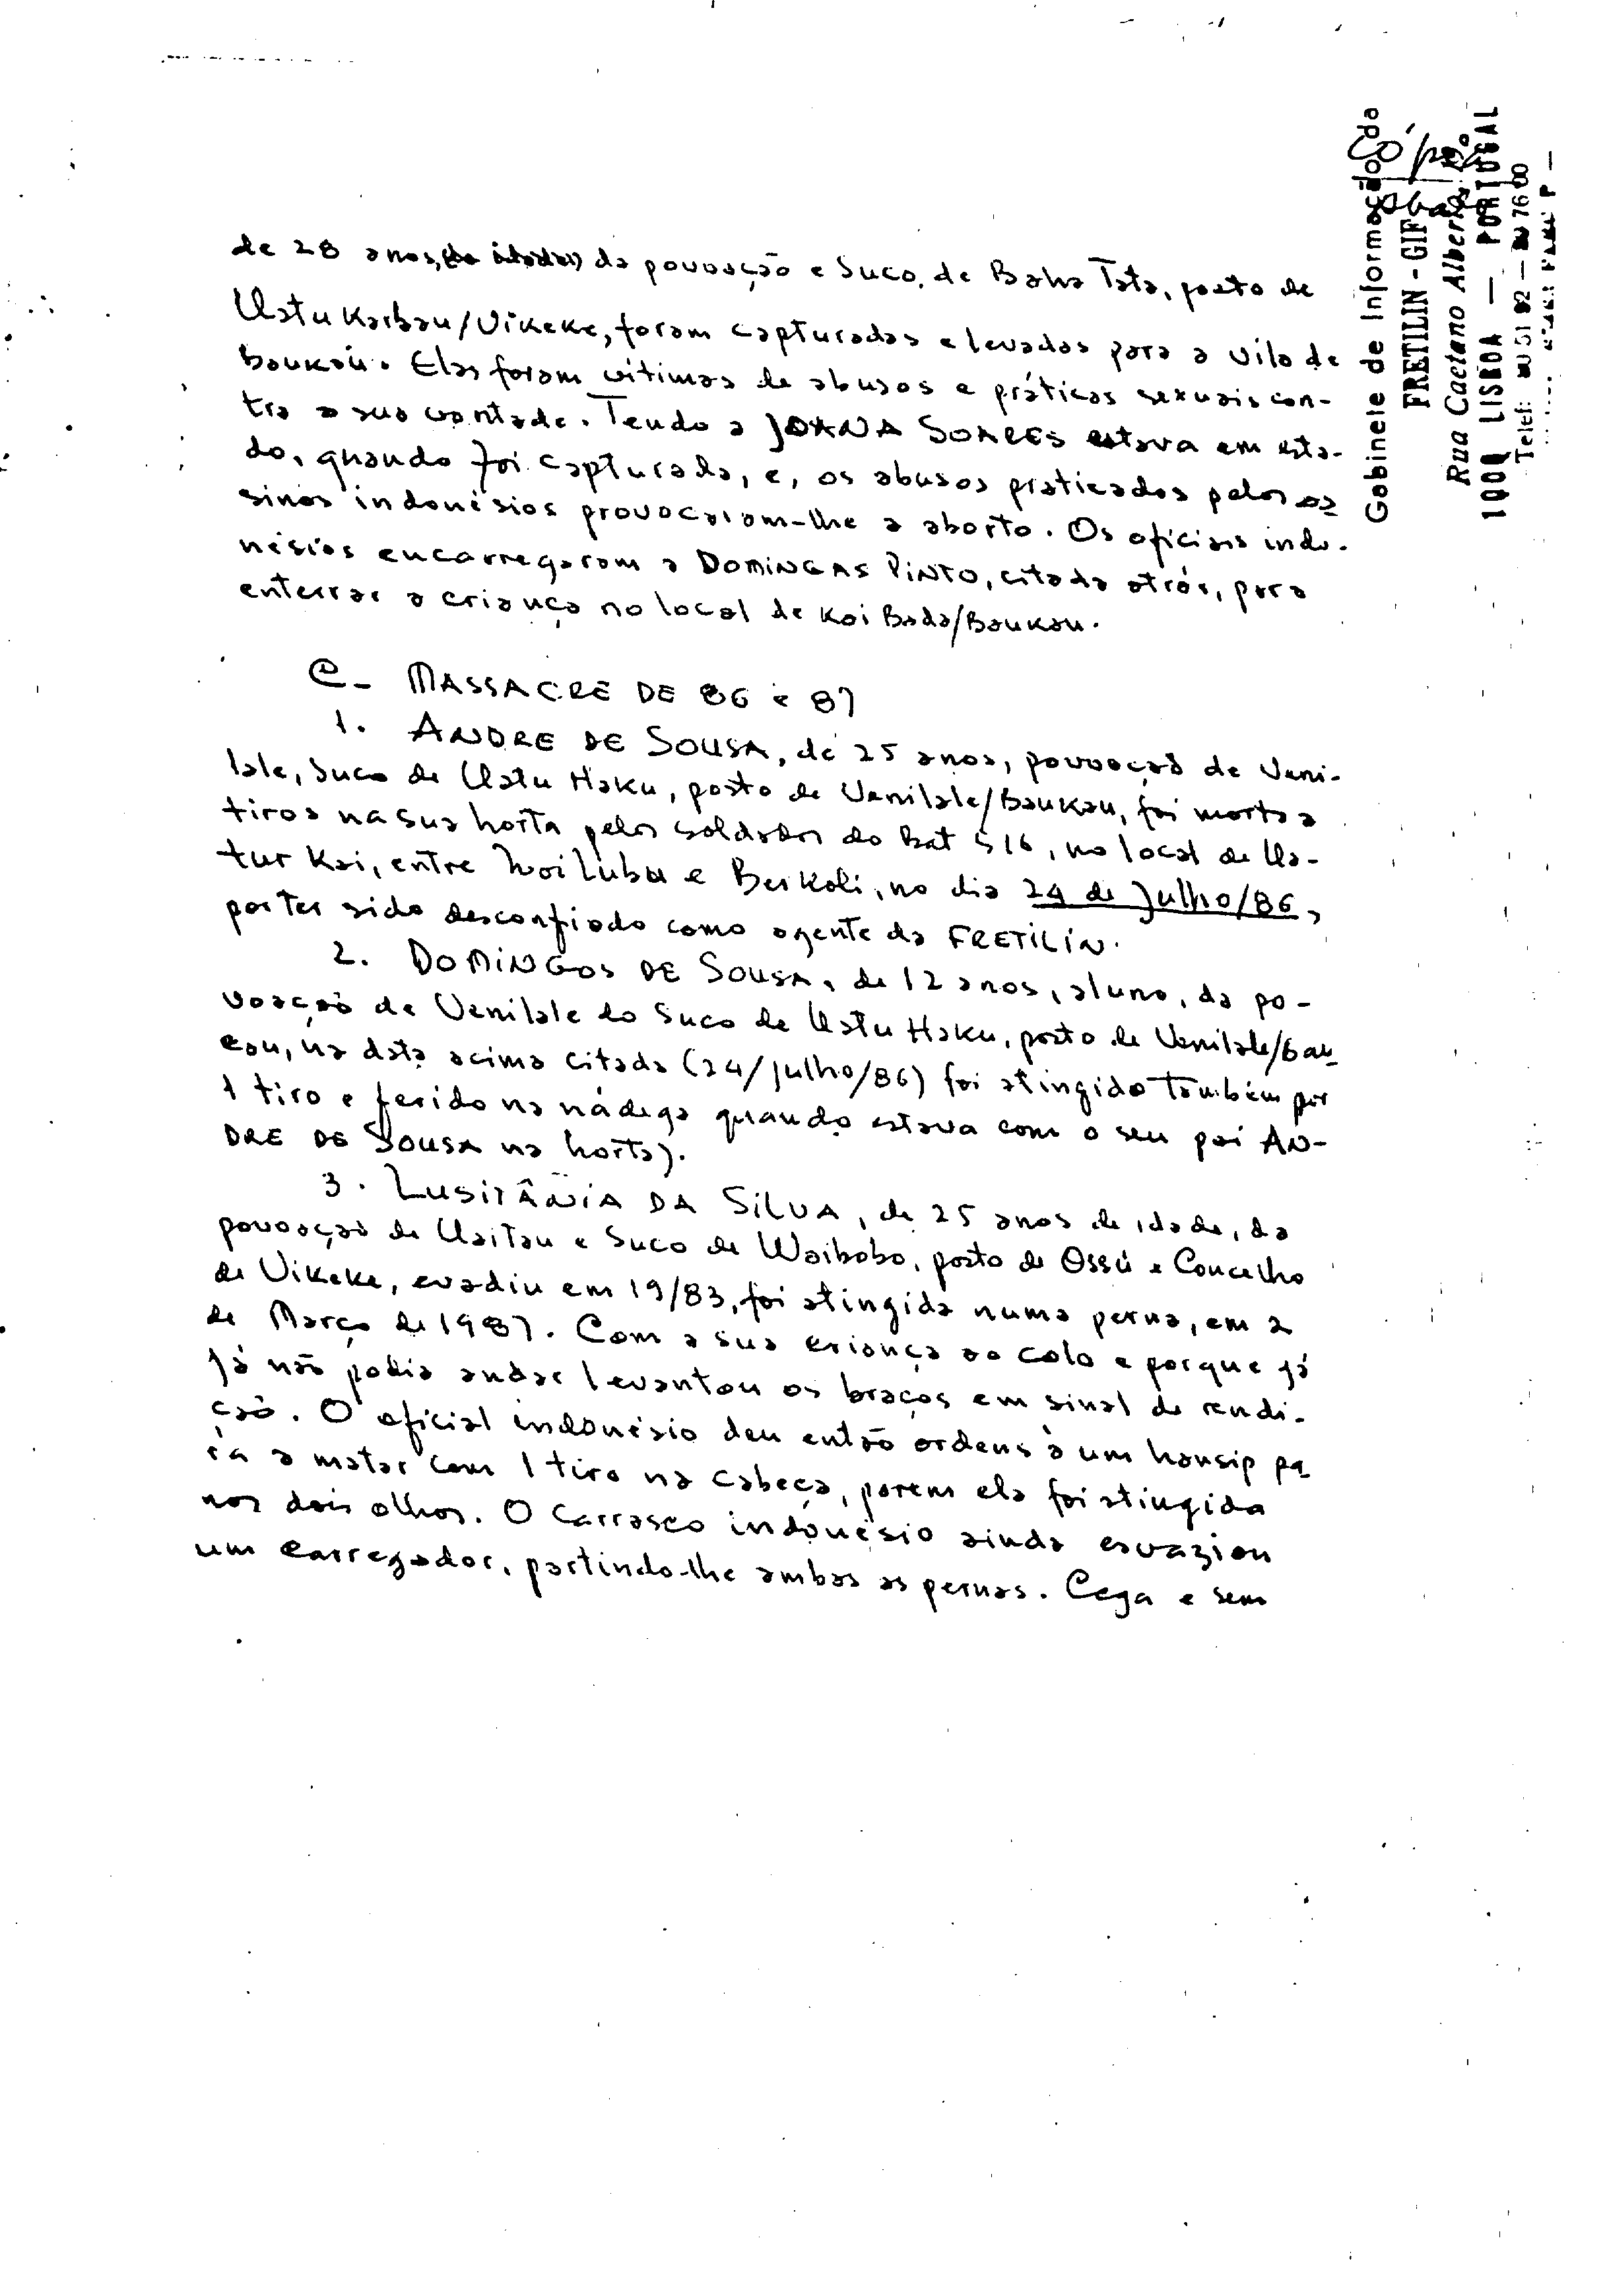 Gabinete de Informação da
FRETILIN - GIF
Rua Caetano Alberto
1000 LISBOA — PORTUGAL
Telef: 51 92 — 76 00
Cópia
de 28 anos, da povoação e Suco, de Baha Tata, posto de
Uatu Karbau/Vikeke, foram capturadas e levadas para a vila de
Baukau. Elas foram vítimas de abusos e práticas sexuais con-
tra a sua vontade. Tendo a JOANA SOARES estava em esta-
do, quando foi capturada, e, os abusos praticados pelos as
sinos indonésios provocaram-lhe a aborto. Os oficiais indo-
nésios encarregaram a DOMINGAS PINTO, citada atrás, para
enterrar a criança no local de Koi Bada/Baukau.
C- MASSACRE DE 86 e 87
1. ANDRE DE SOUSA, de 25 anos, povoação de Veni-
lale, Suco de Uatu Haku, posto de Venilale/Baukau, foi morto a
tiros na sua horta pelos soldados do Bat 516, no local de Ua-
tur Kai, entre Uoi Luba e Berkoli, no dia 24 de Julho/86,
por ter sido desconfiado como agente da FRETILIN.
2. DOMINGOS DE SOUSA, de 12 anos, aluno, da po-
voação de Venilale do Suco de Uatu Haku, posto de Venilale/Bau
cau, na data acima citada (24/julho/86) foi atingido também por
1 tiro e ferido na nádega quando estava com o seu pai AN-
DRE DE SOUSA na horta).
3. LUSITÂNIA DA SILVA, de 25 anos de idade, da
povoação de Uaitau e Suco de Waibobo, posto de Ossú e Concelho
de Vikeke, evadiu em 19/83, foi atingida numa perna, em 2
de Março de 1987. Com a sua criança ao colo e porque já
já não podia andar levantou os braços em sinal de rendi-
ção. O oficial indonésio deu então ordens a um hansip pa
ra a matar com 1 tiro na cabeça, porem ela foi atingida
nos dois olhos. O carrasco indonésio ainda esvaziou
um carregador, partindo-lhe ambas as pernas. Cega e sem